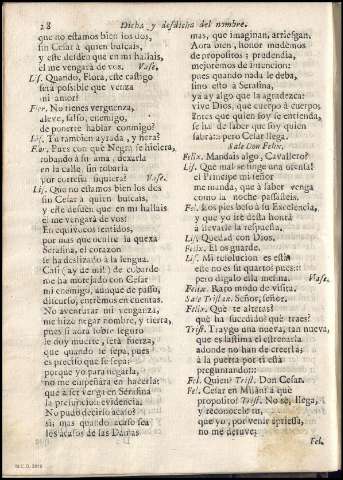 28 Dicha, y desdicha del nombre.
que no estamos bien los dos,
sin Cesar à quien buscais,
y este desden que en mi hallais,
el me vengarà de vos. Vase.
Lis. Quando, Flora, este castigo
serà possible que venza
mi amor?
Flor. No tienes verguenza,
aleve, falso, enemigo,
de ponerte hablar conmigo?
Lis. Tu tambien ayrada, y fiera?
Flor. Pues con què Negra se hiciera,
robando à su ama, dexarla
en la calle, sin robarla
por cortesia siquiera? Vase.
Lis. Que no estamos bien los dos
sin Cesar à quien buscais,
y este desden que en mi hallais
el me vengarà de vos?
En equivocos sentidos,
por mas que oculte la quexa
Serafina, el corazon
se ha deslizado à la lengua.
Casi (ay de mi!) de cobarde
me ha motejado con Cesar
mi enemigo, aunque de passo,
discurso, entrèmos en cuentas.
No aventurar mi venganza,
me hizo negar nombre, y tierra,
pues si aora sobre seguro
le doy muerte, serà fuerza,
que quando te sepa, pues
es preciso que se sepa;
porque yo para negarla,
no me empeñara en hacerla:
que à ser vengà en Serafina
la presuncion evidencia.
No pudo decirlo acaso?
si; mas quando acaso sea
los acasos de las Damas
mas, que imaginan, arriesgan.
Aora bien, honor mudèmos
de propositos; prudencia,
mejorèmos de intencion:
pues quando nada le deba,
sino esto à Serafina,
ya ay algo que la agradezca:
vive Dios, que cuerpo à cuerpo
antes que quien soy se entienda,
se ha de saber que soy quien
sabrà::: pero Cesar llega.
Sale Don Felix.
Felix. Mandais algo, Cavallero?
Lis. Què mal se finge una ofensa!
el Principe mi señor
me manda, que à saber venga
como la noche passasteis.
Fel. Los pies beso à su Excelencia,
y que yo irè desta honra
à llevarle la respuesta.
Lis. Quedad con Dios.
Felix. El os guarde.
Lis. Mi resolucion es esta
este no es su quarto? pues::
pero digalo ella mesma. Vase.
Felix. Raro modo de visita.
Sale Tristan. Señor, señor.
Felix. Què te altera?
què ha sucedido? què traes?
Trist. Traygo una nueva, tan nueva,
que es lastima el estrenarla
adonde no han de creerla;
à la puerta por tì està
preguntando:::
Fel. Quien? Trist. Don Cesar.
Fel. Cesar en Milàn? à què
proposito? Trist. No sè, llega,
y reconocele tu,
que yo, por venir aprissa,
no me detuve;
Fel.